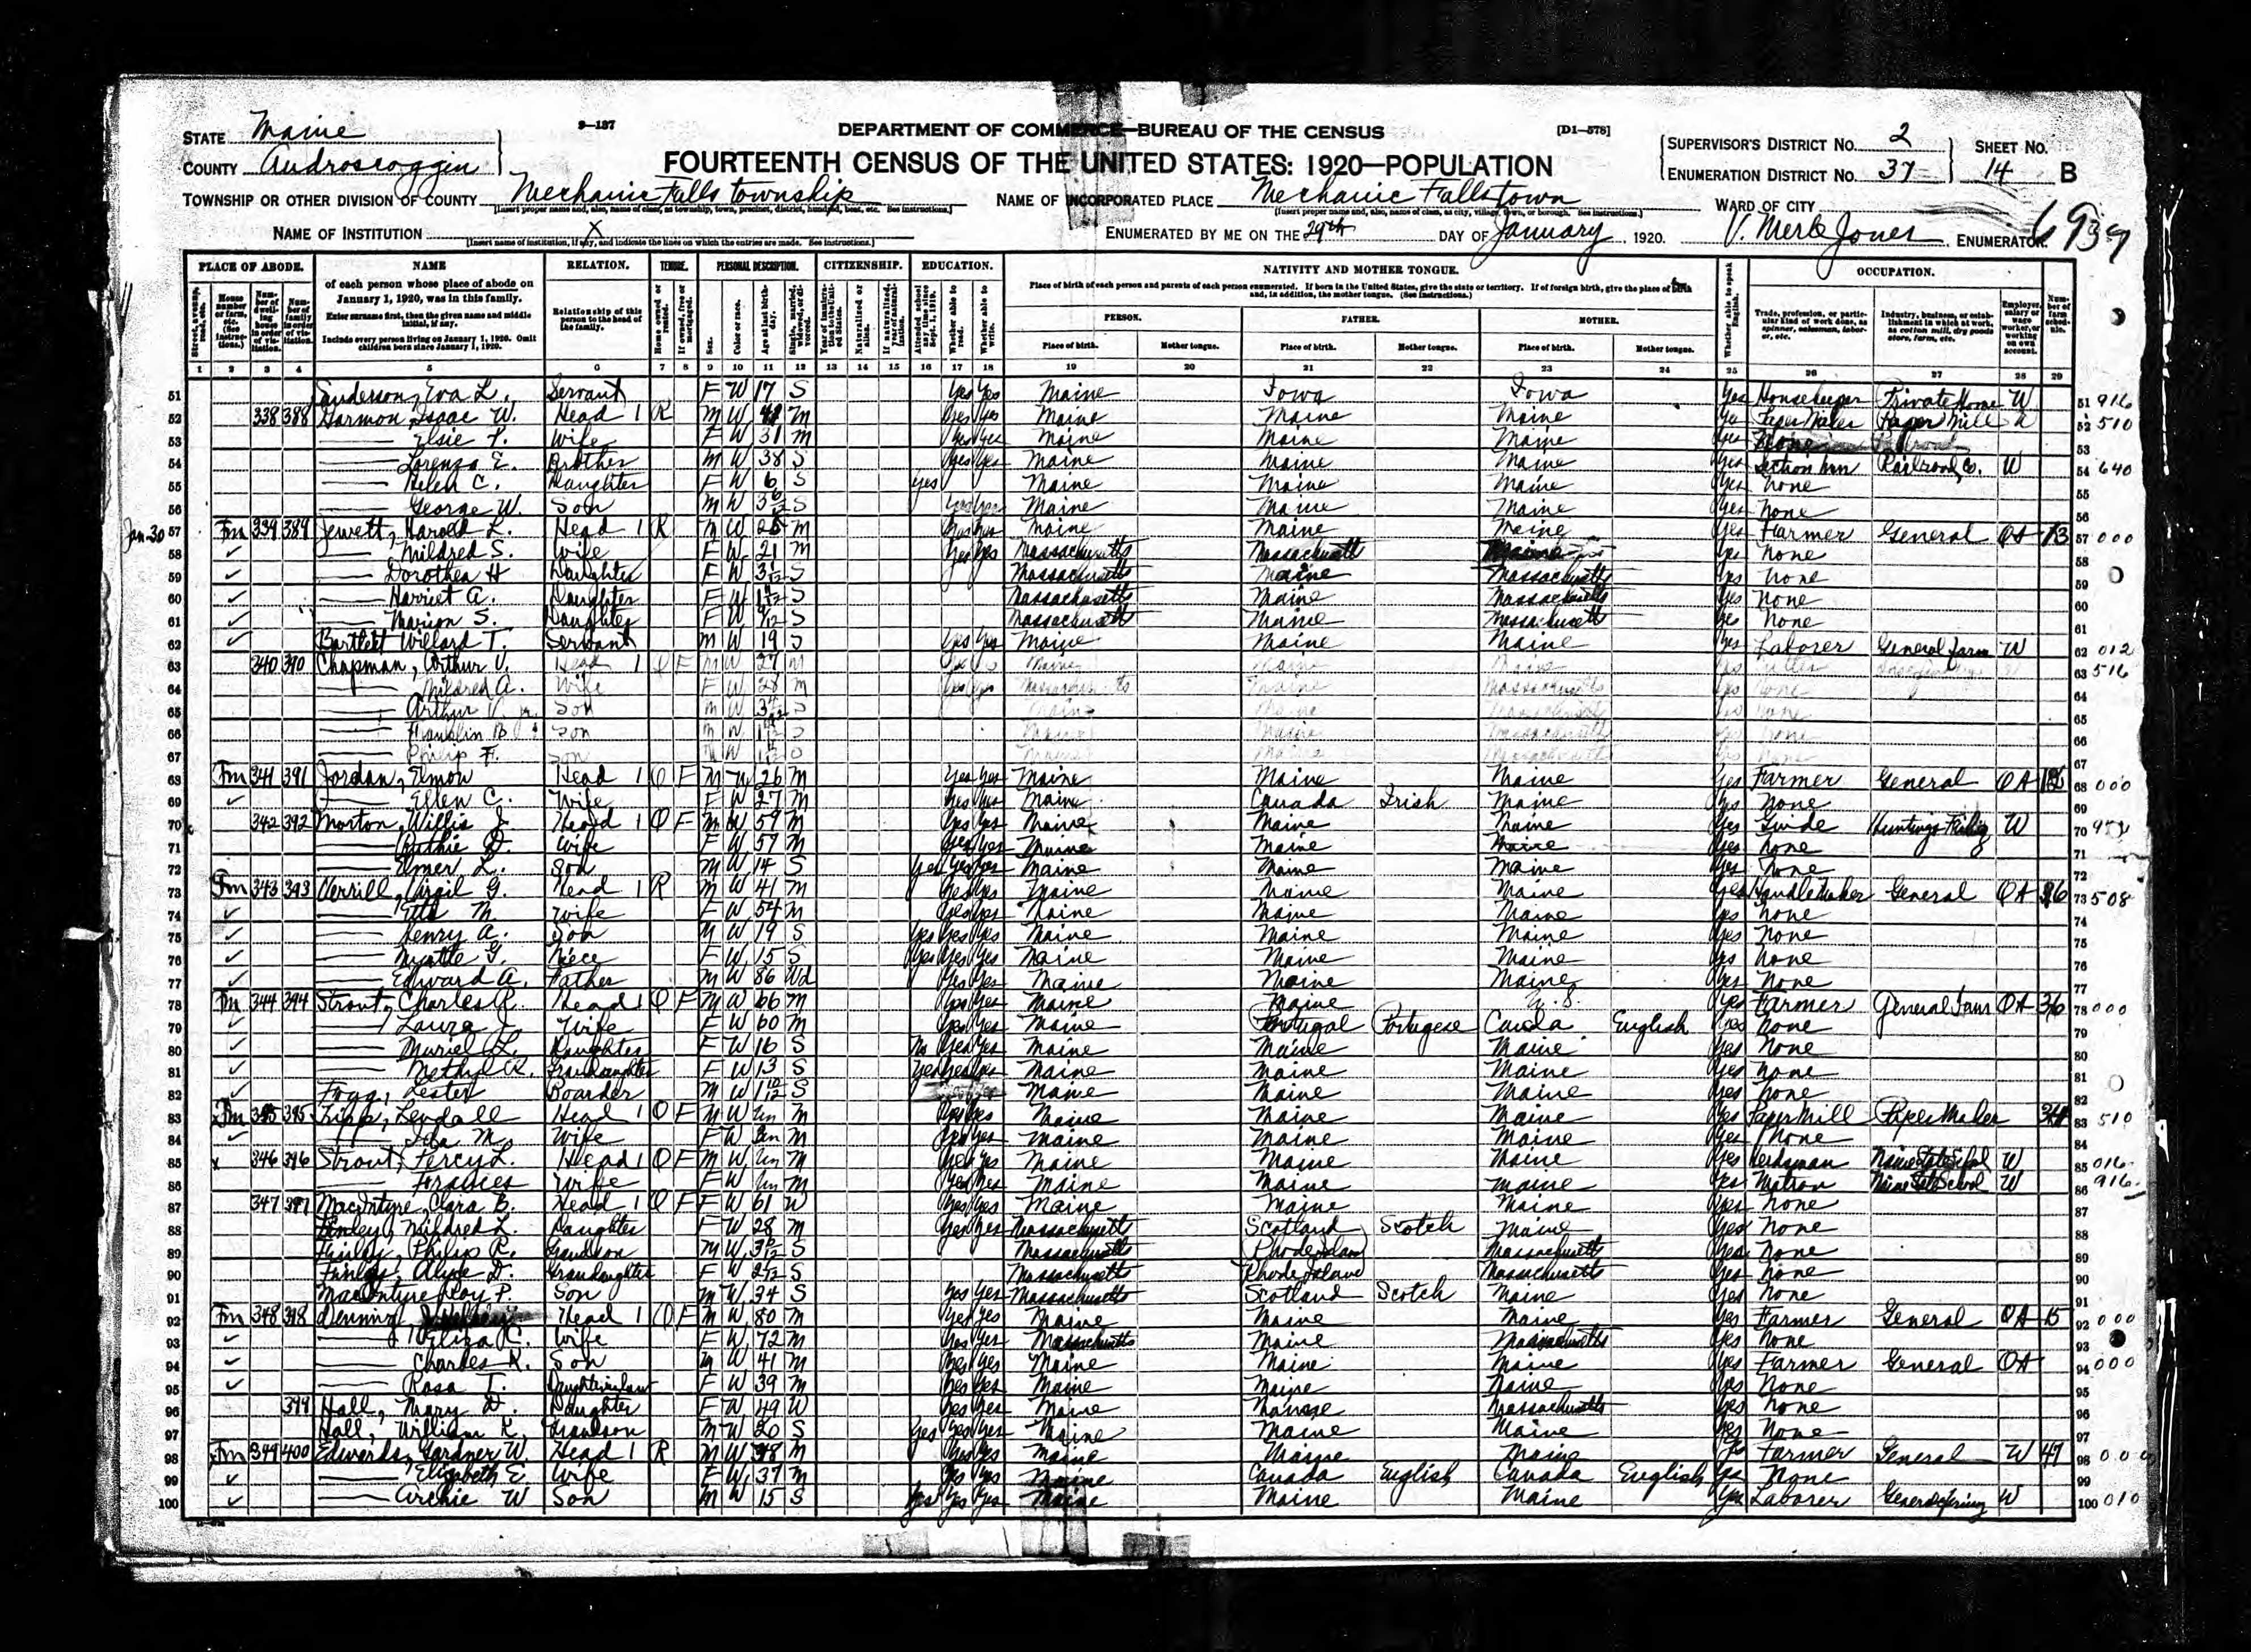 STATE Maine
9-137
DEPARTMENT OF COMMERCE—BUREAU OF THE CENSUS
[D1-578]
COUNTY Androscoggin
FOURTEENTH CENSUS OF THE UNITED STATES: 1920—POPULATION
SUPERVISOR'S DISTRICT No. 2
SHEET No.
ENUMERATION DISTRICT No. 37
14 B
TOWNSHIP OR OTHER DIVISION OF COUNTY Mechanic Falls township
NAME OF INCORPORATED PLACE Mechanic Falls town
WARD OF CITY
NAME OF INSTITUTION X
ENUMERATED BY ME ON THE 29th DAY OF January, 1920. V. Merle Jones, ENUMERATOR.
6939
PLACE OF ABODE. NAME RELATION. TENURE. PERSONAL DESCRIPTION. CITIZENSHIP. EDUCATION. NATIVITY AND MOTHER TONGUE. OCCUPATION.
of each person whose place of abode on January 1, 1920, was in this family.
Enter surname first, then the given name and middle initial, if any.
Include every person living on January 1, 1920. Omit children born since January 1, 1920.
Relationship of this person to the head of the family.
PERSON. FATHER. MOTHER.
Place of birth. Mother tongue. Place of birth. Mother tongue. Place of birth. Mother tongue.
1 2 3 4 5 6 7 8 9 10 11 12 13 14 15 16 17 18 19 20 21 22 23 24 25 26 27 28 29
51 Eva L. Servant F W 17 S Yes Yes Maine Iowa Iowa Yes Housekeeper Private Home W 51 916
52 338 388 Harmon, Isaac W. Head 1 R M W M Yes Yes Maine Maine Maine Yes Paper Maker Paper Mill 52 510
53 Elsie Wife F W 31 M Yes Yes Maine Maine Maine Yes None 53
54 Lorenzo E. Brother M W 38 S Yes Yes Maine Maine Maine Yes Section Man Railroad Co. W 54 640
55 Helen C. Daughter F W 6 S Yes Maine Maine Maine Yes None 55
56 George W. Son M W S Maine Maine Maine Yes None 56
Jan-30 57 Fm 339 389 Jewett, Harold L. Head 1 R M W M Yes Yes Maine Maine Maine Yes Farmer General OA 57 000
58 Mildred S. Wife F W 21 M Yes Yes Massachusetts Massachusetts Yes None 58
59 Dorothea H Daughter F W S Massachusetts Maine Massachusetts Yes None 59
60 Harriet A. Daughter F W S Massachusetts Maine Massachusetts Yes None 60
61 Marion S. Daughter F W S Massachusetts Maine Massachusetts Yes None 61
62 Bartlett Willard T. Servant M W 19 S Yes Yes Maine Maine Maine Yes Laborer General farm W 62 012
63 340 390 Chapman, Arthur V. Head 1 O F M W 27 M Maine Maine Maine 63 516
64 Mildred A. Wife F W 28 M Yes Yes Massachusetts Maine Massachusetts Yes None 64
65 Arthur Jr. Son M W S Maine Maine Massachusetts Yes None 65
66 Franklin B Son M W S Maine Maine Massachusetts Yes None 66
67 Philip F. Son M W S Maine Maine Massachusetts None 67
68 Fm 341 391 Jordan, Elmon Head 1 O F M W 26 M Yes Yes Maine Maine Maine Yes Farmer General OA 68 000
69 Ellen C. Wife F W 27 M Yes Yes Maine Canada Irish Maine Yes None 69
70 342 392 Morton, Willis J. Head 1 O F M W 59 M Yes Yes Maine Maine Maine Yes Guide W 70
71 Wife F W 57 M Yes Yes Maine Maine Maine Yes None 71
72 Elmer L. Son M W 14 S Yes Yes Yes Maine Maine Maine Yes None 72
73 Fm 343 393 Verrill, Virgil G. Head 1 R M W 41 M Yes Yes Maine Maine Maine Yes Handle Maker General OA 73 508
74 Etta M. Wife F W 54 M Yes Yes Maine Maine Maine Yes None 74
75 Henry A. Son M W 19 S Yes Yes Yes Maine Maine Maine Yes None 75
76 Myrtle G. Niece F W 15 S Yes Yes Yes Maine Maine Maine Yes None 76
77 Edward A. Father M W 86 Wd Yes Yes Maine Maine Maine Yes None 77
78 Fm 344 394 Strout, Charles R. Head 1 O F M W 66 M Yes Yes Maine Maine U.S. Yes Farmer General Farm OA 36 78 000
79 Laura J. Wife F W 60 M Yes Yes Maine Portugal Portugese English Yes None 79
80 Muriel L. Daughter F W 16 S No Yes Yes Maine Maine Maine Yes None 80
81 Methyl R. Grandaughter F W 13 S Yes Yes Yes Maine Maine Maine Yes None 81
82 Fogg, Lester Boarder M W 1 10/12 S Maine Maine Maine Yes None 82
83 Fm 345 395 Tripp, Lendall Head 1 O F M W Un M Yes Yes Maine Maine Maine Yes Paper Mill Paper Maker 83 510
84 Ida M. Wife F W Un M Yes Yes Maine Maine Maine Yes None 84
85 346 396 Strout, Percy L. Head 1 O F M W Un M Yes Yes Maine Maine Maine Yes Herdsman W 85 016
86 Frances Wife F W Un M Yes Yes Maine Maine Maine Yes Matron Maine State School W 86 916
87 347 397 MacIntyre, Clara B. Head 1 O F F W 61 W Yes Yes Maine Maine Maine Yes None 87
88 Finley, Mildred L. Daughter F W 28 M Yes Yes Massachusetts Scotland Scotch Maine Yes None 88
89 Finley, Philip R. Grandson M W S Massachusetts Rhode Island Massachusetts Yes None 89
90 Finley, Alyce D. Grandaughter F W S Massachusetts Rhode Island Massachusetts Yes None 90
91 MacIntyre, Roy P. Son M W 34 S Yes Yes Massachusetts Scotland Scotch Maine Yes None 91
92 Fm 348 398 Denning Head 1 O F M W 80 M Yes Yes Maine Maine Maine Yes Farmer General OA 15 92 000
93 Eliza C. Wife F W 72 M Yes Yes Massachusetts Maine Massachusetts Yes None 93
94 Charles K. Son M W 41 M Yes Yes Maine Maine Maine Yes Farmer General OA 94 000
95 Rosa T. Daughterinlaw F W 39 M Yes Yes Maine Maine Maine Yes None 95
96 399 Hall, Mary D. Daughter F W 49 W Yes Yes Maine Maine Massachusetts Yes None 96
97 Hall, William K. Grandson M W 20 S Yes Yes Yes Maine Maine Maine Yes None 97
98 Fm 349 400 Edwards, Gardner W. Head 1 R M W M Yes Yes Maine Maine Maine Yes Farmer General W 47 98 000
99 Elizabeth E. Wife F W 37 M Yes Yes Maine Canada English Canada English Yes None 99
100 Archie W Son M W 15 S Yes Yes Yes Maine Maine Maine Yes Laborer W 100 010